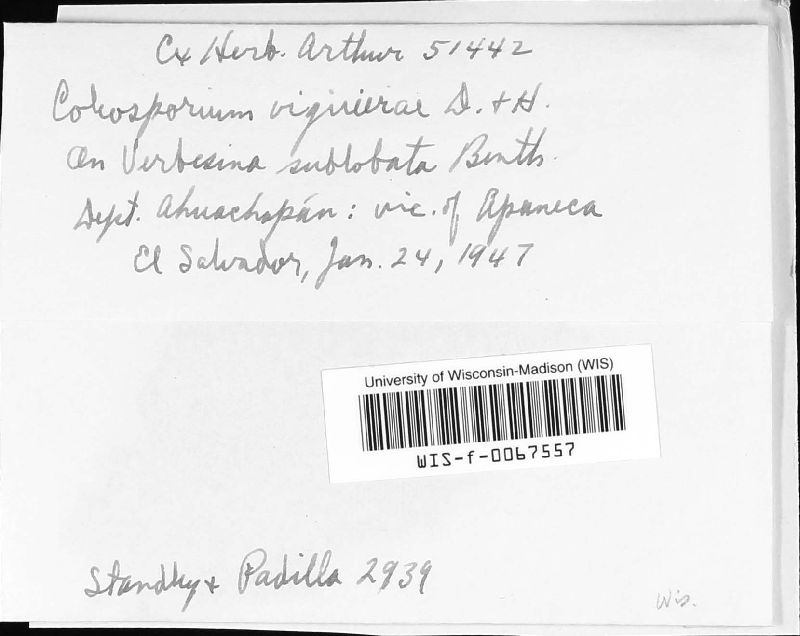 Ex Herb. Arthur 51442
Coleosporium viguierae D. + H.
On Verbesina sublobata Benth.
Dept. Ahuachapán: vic. of Apaneca
El Salvador, Jan. 24, 1947
University of Wisconsin-Madison (WIS)
WIS-f-0067557
Standley + Padilla 2939
Wis.